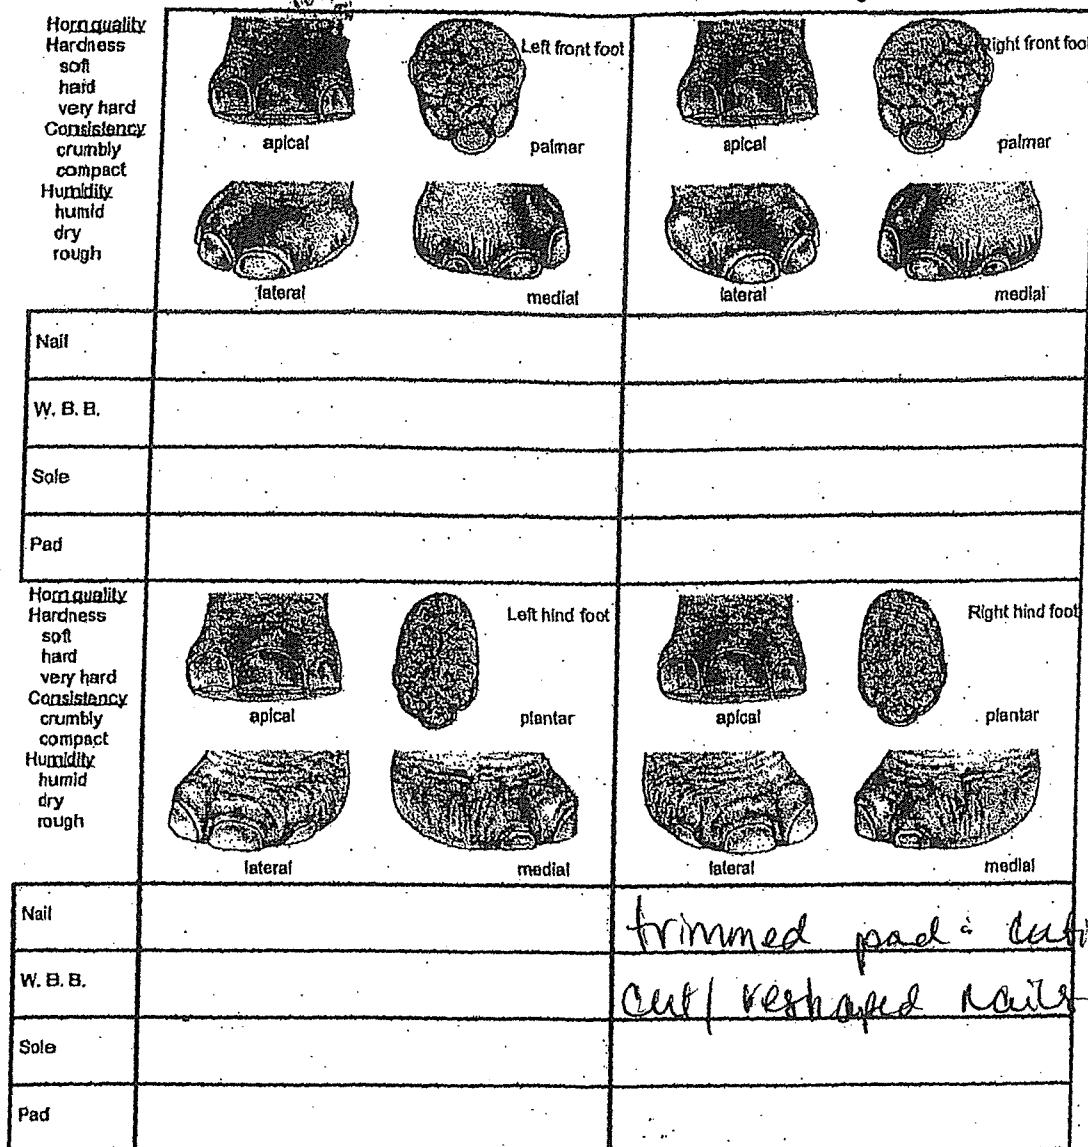 Horn quality
Hardness
soft
hard
very hard
Consistency
crumbly
compact
Humidity
humid
dry
rough
Left front foot
apical
palmar
lateral
medial
Right front foot
apical
palmar
lateral
medial
Nail
W. B. B.
Sole
Pad
Horn quality
Hardness
soft
hard
very hard
Consistency
crumbly
compact
Humidity
humid
dry
rough
Left hind foot
apical
plantar
lateral
medial
Right hind foot
apical
plantar
lateral
medial
Nail
trimmed pad
W. B. B.
cut/ reshaped nails
Sole
Pad